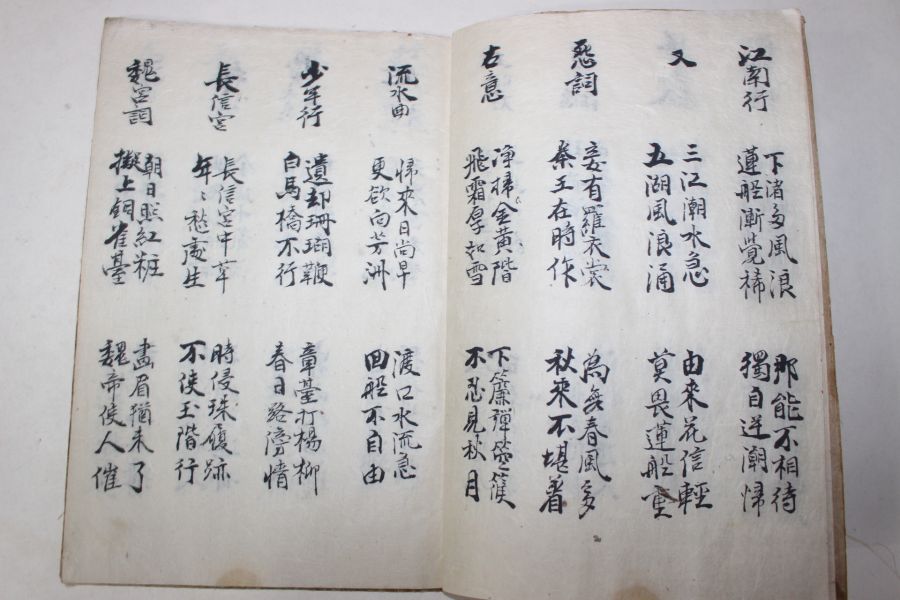 江南行
下渚多風浪
蓮船漸覺稀
那能不相待
獨自逆潮歸
又
三江潮水急
五湖風浪涌
由來花信輕
莫畏蓮船重
怨詞
妾有羅衣裳
秦王在時作
爲舞春風多
秋來不堪着
古意
淨掃金黃階
飛霜厚如雪
下簾彈箜篌
不忍見秋月
流水曲
歸來日尚早
更欲向芳洲
渡口水流急
回船不自由
少年行
遺却珊瑚鞭
白馬橋不行
章臺折楊柳
春日路傍情
長信宮
長信宮中草
年〻愁處生
時侵珠履跡
不使玉階行
魏宮詞
朝日照紅粧
擬上銅雀臺
畫眉猶未了
魏帝使人催